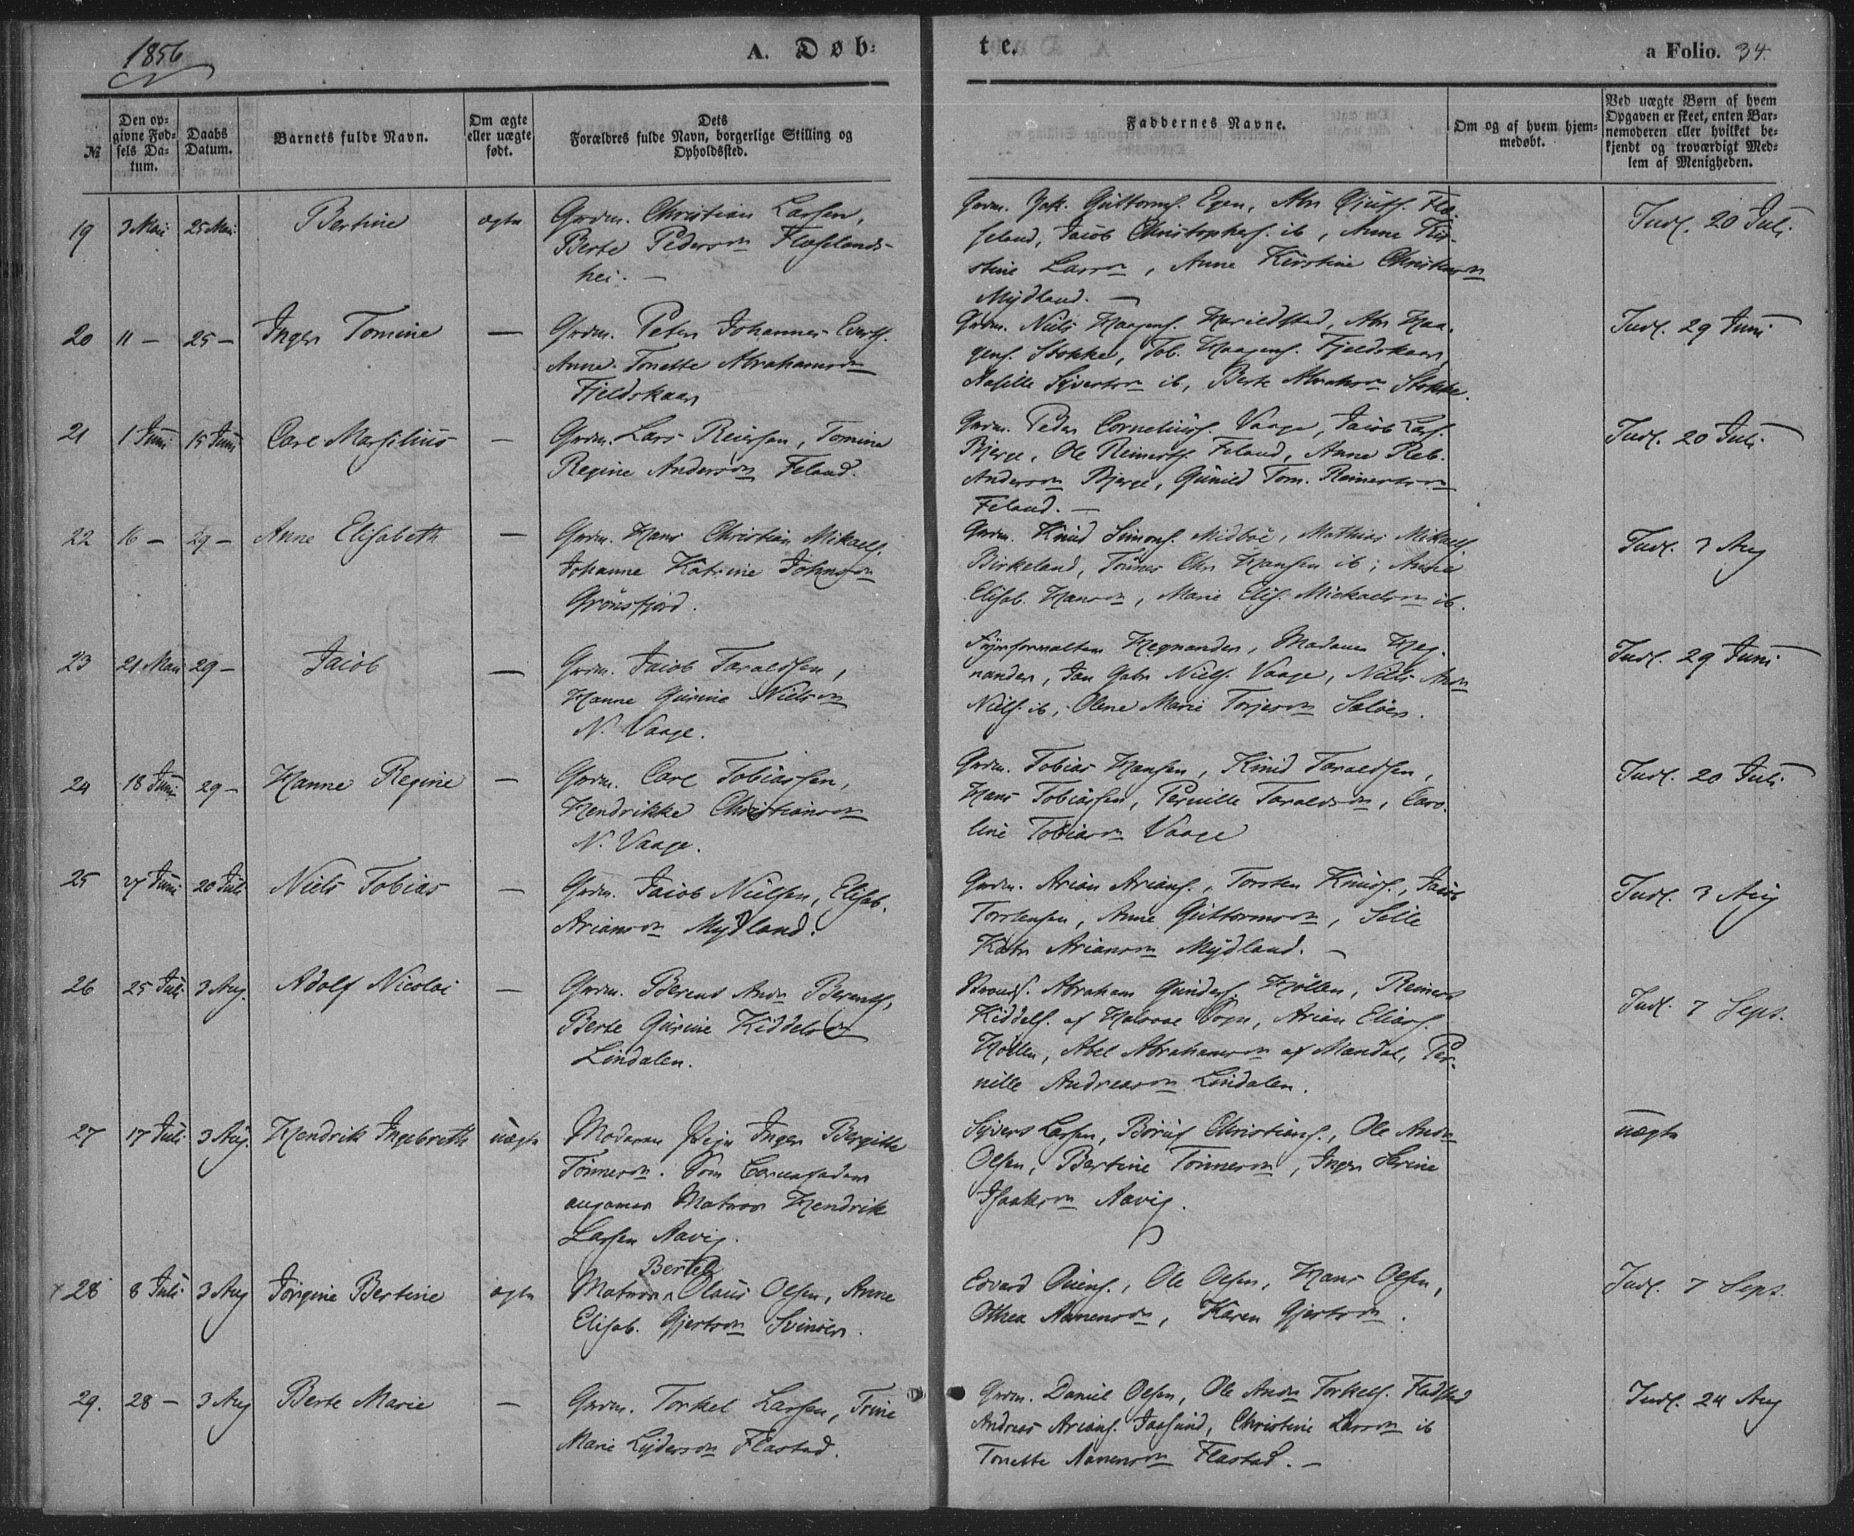 1856
A. Døb-
te.
a Folio. 34.
№
Den op-
givne Fød-
sels Da-
tum.
Daabs
Datum.
Barnets fulde Navn.
Om ægte
eller uægte
født.
Dets
Forældres fulde Navn, borgerlige Stilling og
Opholdssted.
Faddernes Navne.
Om og af hvem hjem-
medøbt.
Ved uægte Børn af hvem
Opgaven er skeet, enten Bar-
nemoderen eller hvilket be-
kjendt og troværdigt Med-
lem af Menigheden.
19 3 Mai 25 Mai Bertine ægte
Grdm. Christian Larsen,
Berte Pedersdn Flæselands-
hei. —
Grdm. Guttorms. Egen,
seland, Jacob Christophers. ib, Anne Kir-
stine Larsdn, Anne Kirstine Christensdn
Mydland. —
Indf. 20 Juli
20 11 — 25 — Inger Tomine —
Grdm. Peter Johannes Everts.
Anne Tonette Abrahamsdn
Fjeldskaar
Grdm. Niels Haagens. Harildstad, Abr Haa-
gens. Stokke, Tob. Haagens. Fjeldskaar,
Sivertsdn ib, Berte Abrahsdn Stokke.
Indf. 29 Juni
21 1 Juni 15 Juni Carl Marsilius —
Grdm. Lars Reiersen, Tomine
Regine Andersdn Feland.
Grdm. Peder Cornelius. Vaage, Jacob Lars.
Bjerge, Ole Reinerts. Feland, Anne Reb.
Andersdn Bjerge, Gunild Tom. Reinertsdn
Feland. —
Indf. 20 Juli
22 16 — 29 — Anne Elisabeth —
Grdm. Hans Christian Mikaels.
Johanne Katrine Johnsdn
Grönsfjord.
Grdm. Knud Simons. Midboe, Mathias Mikaels.
Birkeland, Tönnes Chr Hansen ib, Anne
Elisab. Hansdn, Marie Elis. Mickaelsdn ib.
Indf. 3 Aug
23 21 Mai 29 — Jacob —
Grdm. Jacob Taraldsen,
Hanne Gurine Nielsdn
N. Vaage.
Fyrforvalter Hegnander, Madame Heg-
nander, Jan Gabr Niels. Vaage, Niels
Niels. ib, Olene Marie Torjesdn Saløen.
Indf. 29 Juni
24 18 Juni 29 — Hanne Regine —
Grdm. Carl Tobiassen,
Hendrikke Christiansdn
N. Vaage.
Grdm. Tobias Hansen, Knud Taraldsen,
Hans Tobiassen, Pernille Taraldsdn, Caro-
line Tobiasdn Vaage
Indf. 20 Juli
25 27 Juni 20 Juli Niels Tobias —
Grdm. Jacob Nielsen, Elisab.
Ariansdn Mydland.
Grdm. Arian Arians., Torsten Knuds., Jacob
Torstensen, Anne Guttormsdn, Sille
Katr Ariansdn Mydland. —
Indf. 3 Aug
26 25 Juli 3 Aug. Adolf Nicolai —
Grdm. Berent Andr Berents.
Berte Gurine Kiddelsdn
Lindalen.
Abraham Gunders. Höllen, Reinert
Kiddels. af Halsaae Sogn, Arian Elias.
Höllen, Abel Abrahamsdn af Mandal, Per-
nille Andreasdn Lindalen.
Indf. 7 Sept.
27 17 Juli 3 Aug. Hendrik Ingebreth uægte
Moderen Pige Inger Bergitte
Tönnesdn. Som Barnefader
angaves Matros Hendrik
Larsen Aavig.
Syvert Larsen, Börius Christians., Ole Andr
Olsen, Bertine Tönnesdn, Inger Serine
Isaaksdn Aavig.
uægte
28 8 Juli 3 Aug Jörgine Bertine ægte
Bertel
Matros Olaus Olsen, Anne
Elisab. Gjertsdn Svinøer.
Edvard Ouens., Ole Olsen, Hans Olsen,
Othea Aanensdn, Karen Gjertsdn.
Indf. 7 Sept.
29. 28 — 3 Aug Berte Marie —
Grdm. Torkel Larsen, Trine
Marie Lydersdn Flastad.
Grdm. Daniel Olsen, Ole Andr Torkels. Fladstad
Andreas Arians. Jaasund, Christine Larsdn ib
Tonette Aanensdn Flastad. —
Indf. 24 Aug